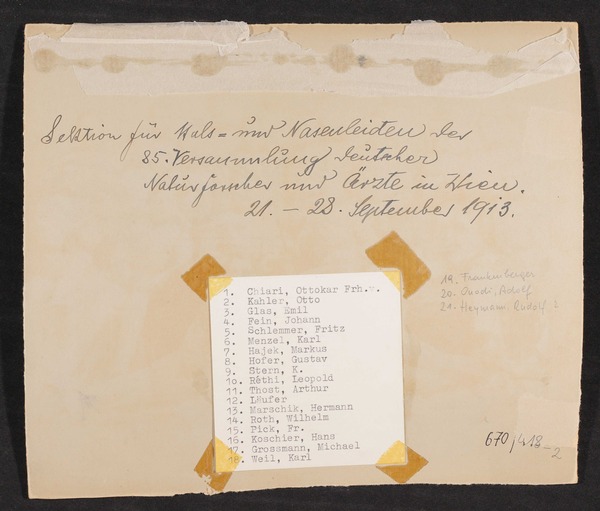 Sektion für Hals= und Nasenleiden der
85. Versammlung deutscher
Naturforscher und Ärzte in Wien.
21. – 28. September 1913.
1. Chiari, Ottokar Frh.v.
2. Kahler, Otto
3. Glas, Emil
4. Fein, Johann
5. Schlemmer, Fritz
6. Menzel, Karl
7. Hajek, Markus
8. Hofer, Gustav
9. Stern, K.
10. Réthi, Leopold
11. Thost, Arthur
12. Läufer
13. Marschik, Hermann
14. Roth, Wilhelm
15. Pick, Fr.
16. Koschier, Hans
17. Grossmann, Michael
18. Weil, Karl
19. Frankenberger
20. Onodi, Adolf
21. Heymann, Rudolf ?
670/418-2